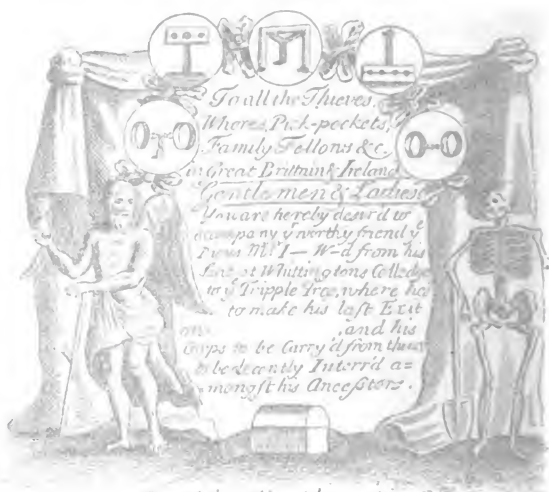 To all the Thieves,
Whores, Pick-pockets,
Family Fellons &c
in Great Brittain & Ireland
Gentlemen & Ladies
You are hereby desir'd to
accompany yͤ worthy friend yͤ
Pious Mʳ I—W—d from his
Seat at Whittingtons Colledge
to yͤ Tripple Tree, where he's
to make his last Exit
on ,and his
Corps to be Carry'd from thence
to be decently Interr'd a=
mongst his Ancestors.